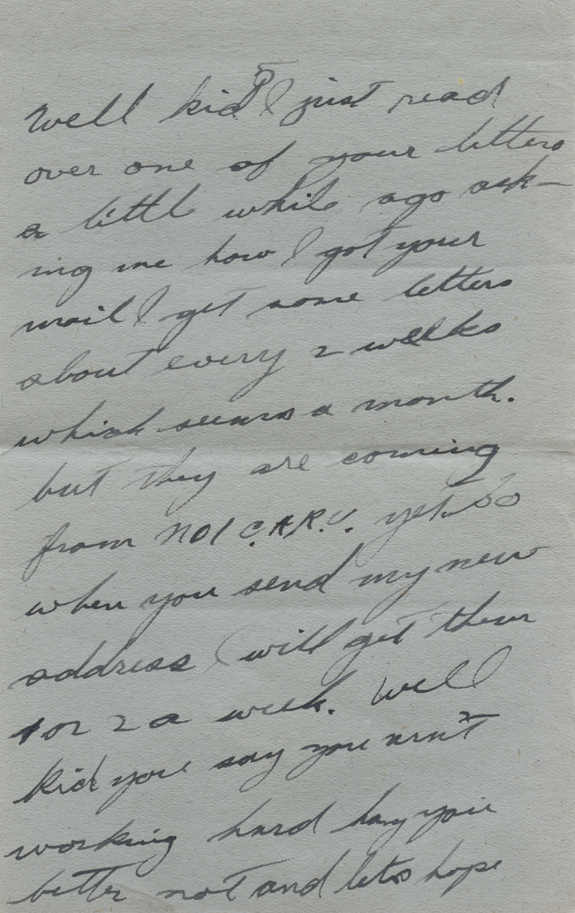 Well kid I just read
over one of your letters
a little while ago ask-
ing me how I got your
mail I get some letters
about every 2 weeks
which seems a month.
but they are coming
from No1 C.A.R.U. yet. So
when you send my new
address I will get them
1 or 2 a week. Well
kid you say you arn't
working hard hay you
better not and lets hope